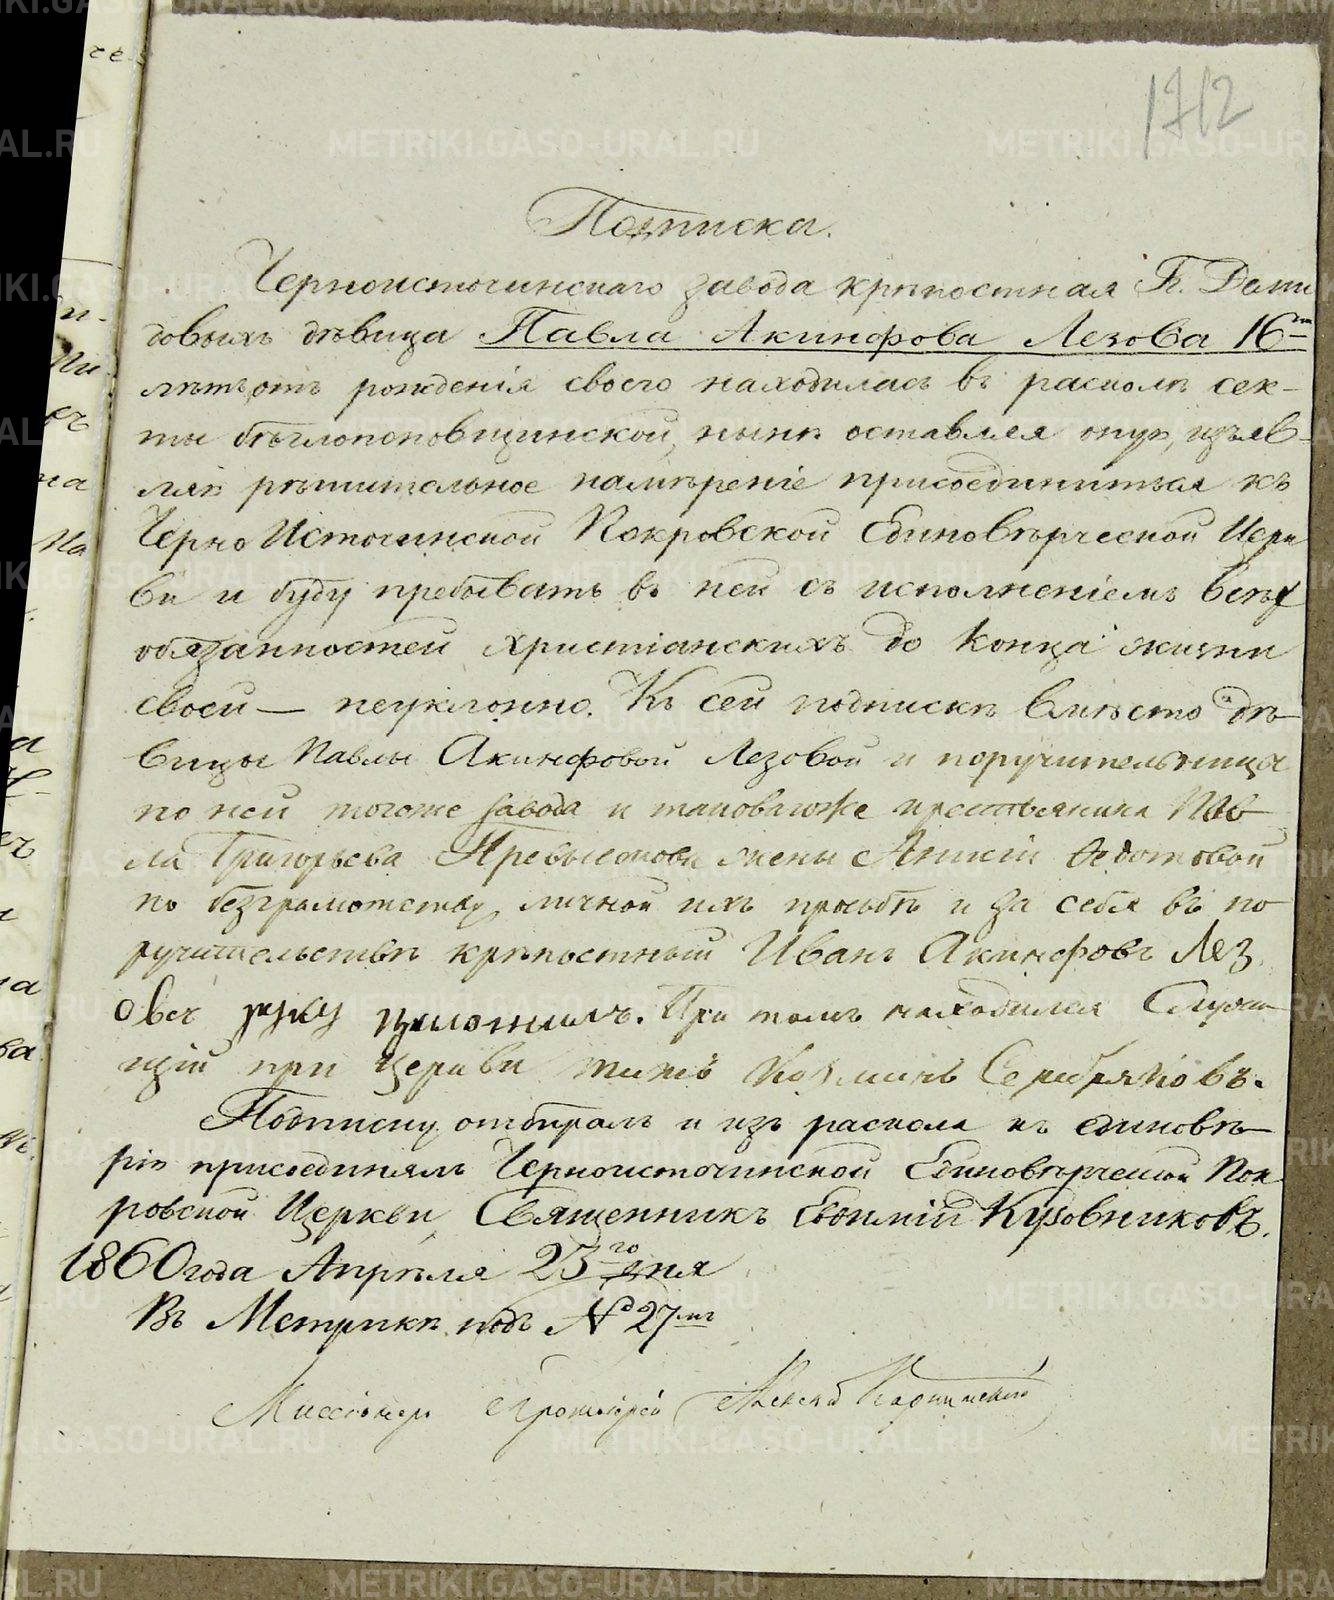 1712
Подписка.
Черноисточинскаго завода крѣпостная Г. Деми
довыхъ дѣвица Павла Акинфова Лезова 16ти
лѣтъ, отъ рожденія своего находилась въ расколѣ сек-
ты бѣглопоповщинской, нынѣ оставляя оную, изъяв-
ляю рѣшительное намѣреніе присоединиться къ
Черно Источинской Покровской Единовѣрческой Церк
ви и буду пребывать въ ней съ исполненіемъ всѣх
обязанностей христіанскихъ до конца жизни
своей — неуклонно. Къ сей подпискѣ вмѣсто дѣ-
вицы Павлы Акинфовой Лезовой и поручительница
по ней того же завода и таковаго же крестьянина Пав
ла Григорьева жены Федотовой
по безграмотству личной ихъ прозьбѣ и за себя въ по
ручительствѣ крѣпостный Иванъ Акинфовъ Лез
овъ руку приложилъ. При томъ находился Служа
щій при Церкви Козминъ Серебряковъ.
Подписку отбиралъ и изъ раскола къ единовѣ-
рію присоединялъ Черноисточинской Единовѣрческой Пок
ровской Церкви, Священникъ Евѳимій Кузовниковъ.
1860 года Апрѣля 23го дня
Въ Метрикѣ подъ № 27мъ
Миссіонеръ Протоіерей
METRIKI.GASO-URAL.RU